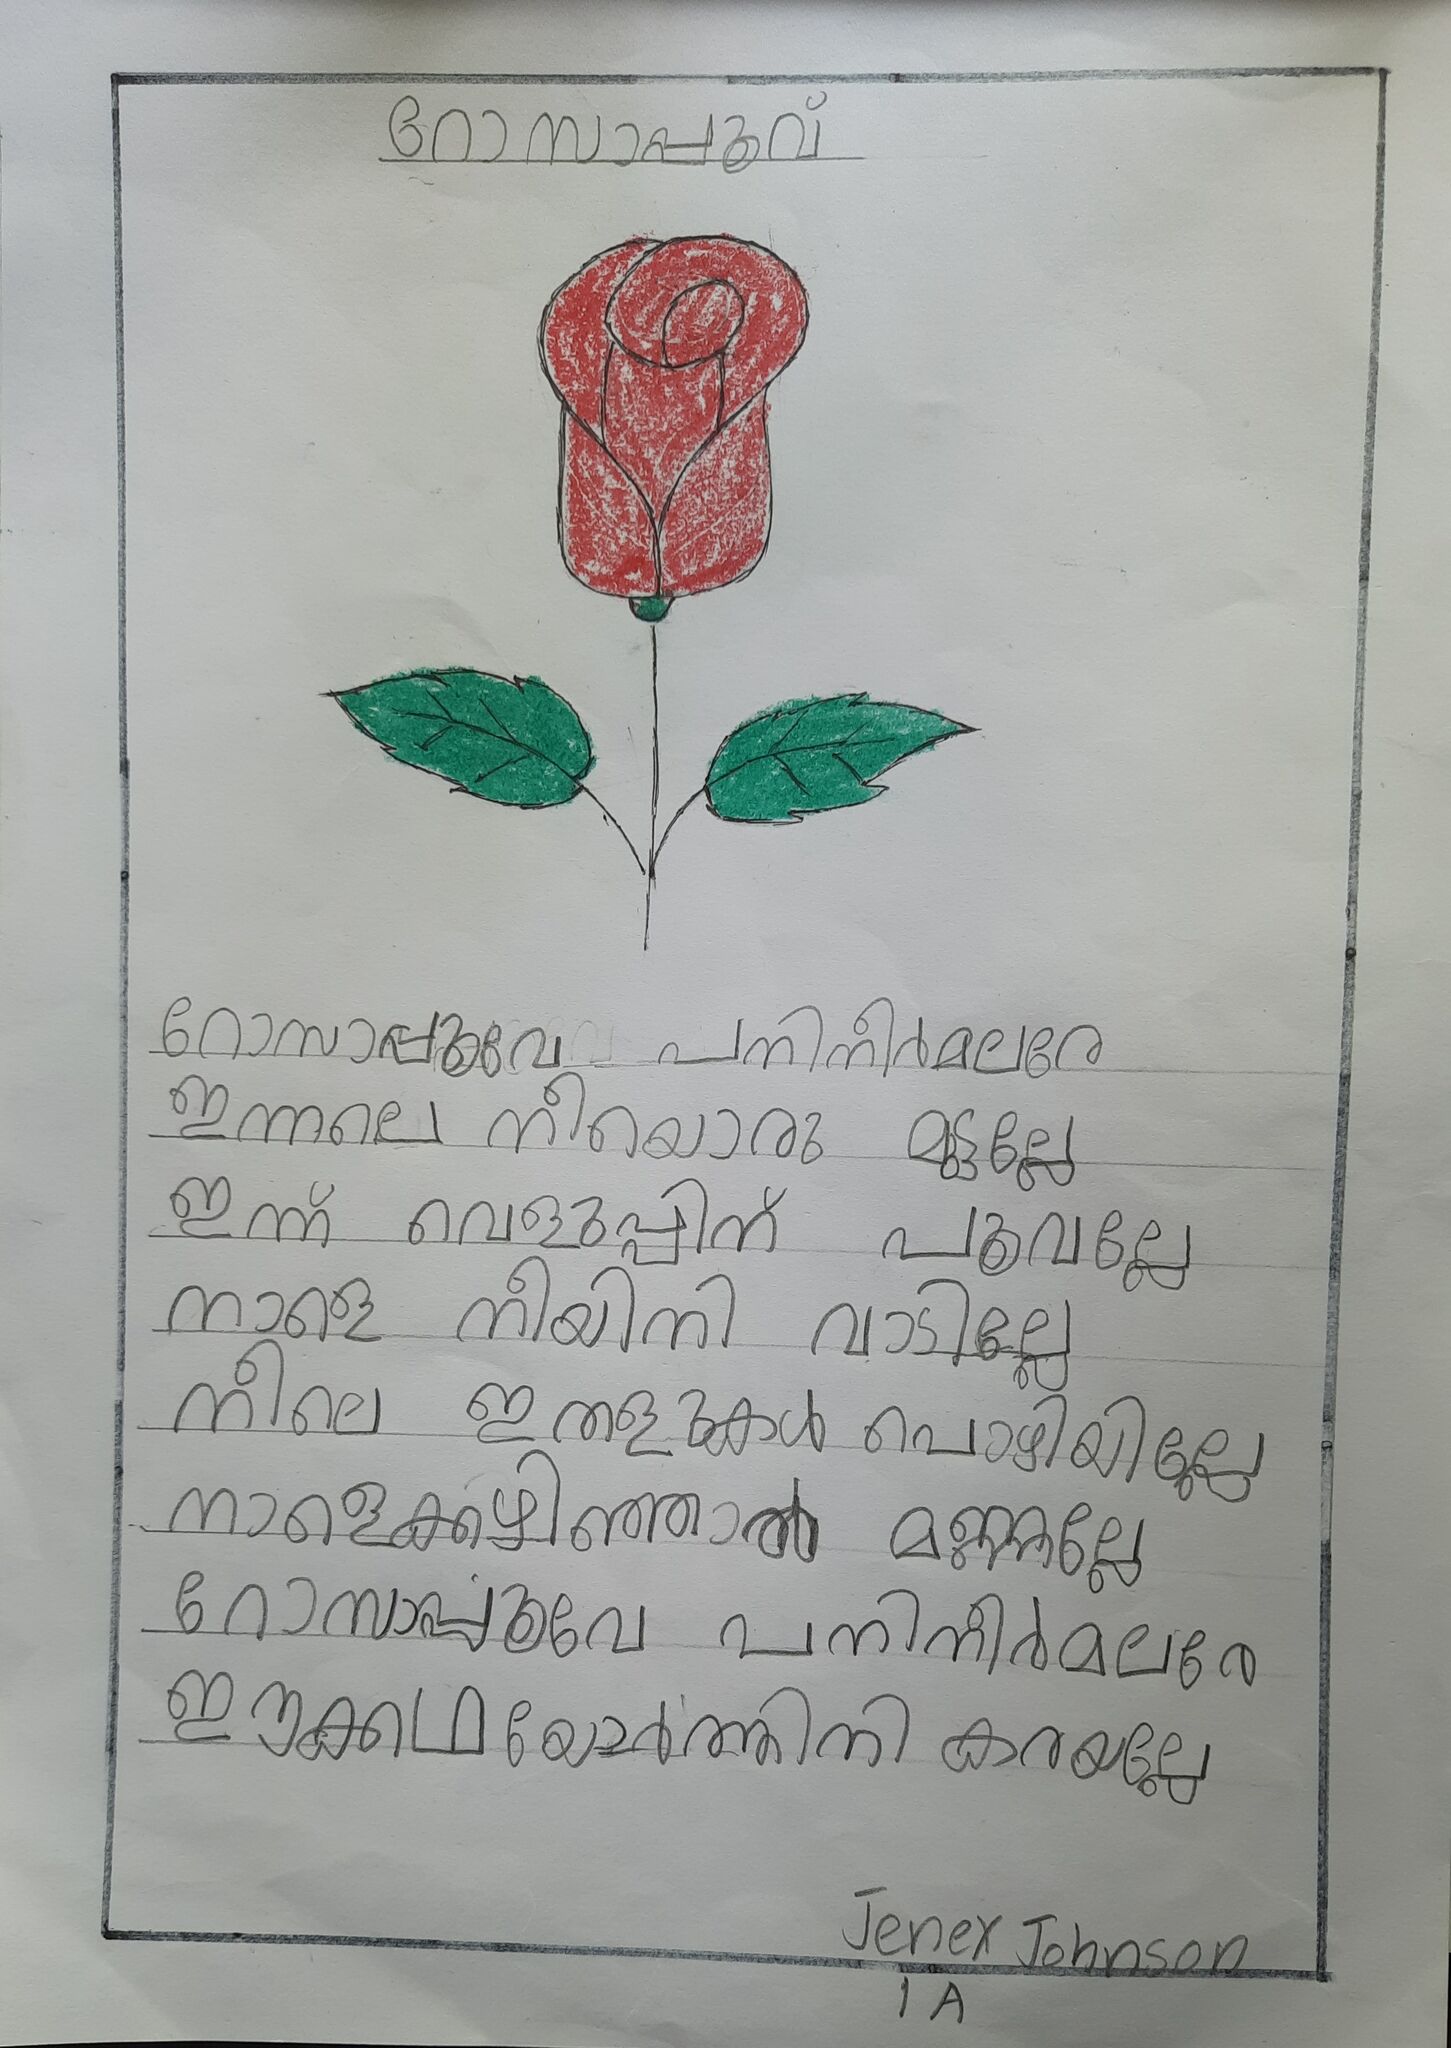 റോസാപ്പൂവ്
റോസാപ്പൂവേ പനിനീർമലരേ
ഇന്നലെ നീയൊരു മൊട്ടല്ലേ
ഇന്ന് വെളുപ്പിന് പൂവല്ലേ
നാളെ നീയിനി വാടില്ലേ
നീലെ ഇതളുകൾ പൊഴിയില്ലേ
നാളെക്കഴിഞ്ഞാൽ മണ്ണല്ലേ
റോസാപ്പൂവേ പനിനീർമലരേ
ഈക്കഥയോർത്തിനി കരയല്ലേ
Jenex Johnson
1 A